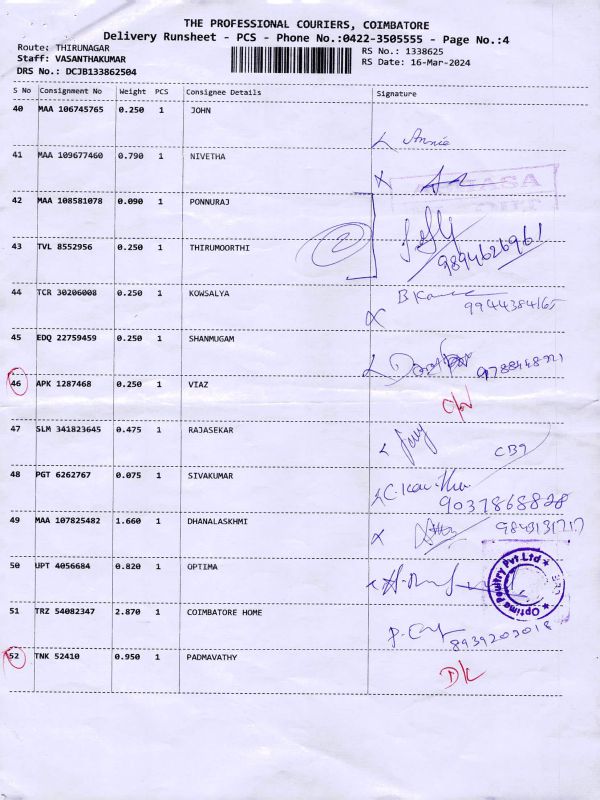 THE PROFESSIONAL COURIERS, COIMBATORE
Delivery Runsheet - PCS - Phone No.:0422-3505555 - Page No.:4
Route: THIRUNAGAR
Staff: VASANTHAKUMAR
DRS No.: DCJB133862504
RS No.: 1338625
RS Date: 16-Mar-2024
S No Consignment No Weight PCS Consignee Details Signature
40 MAA 106745765 0.250 1 JOHN
Annie
41 MAA 109677460 0.790 1 NIVETHA
42 MAA 108581078 0.090 1 PONNURAJ
43 TVL 8552956 0.250 1 THIRUMOORTHI
2
9894626961
44 TCR 30206008 0.250 1 KOWSALYA
9944384165
45 EDQ 22759459 0.250 1 SHANMUGAM
46 APK 1287468 0.250 1 VIAZ
47 SLM 341823645 0.475 1 RAJASEKAR
48 PGT 6262767 0.075 1 SIVAKUMAR
9037868828
49 MAA 107825482 1.660 1 DHANALASKHMI
50 UPT 4056684 0.820 1 OPTIMA
Optima Poultry Pvt.Ltd
51 TRZ 54082347 2.870 1 COIMBATORE HOME
8939203018
52 TNK 52410 0.950 1 PADMAVATHY
D/L